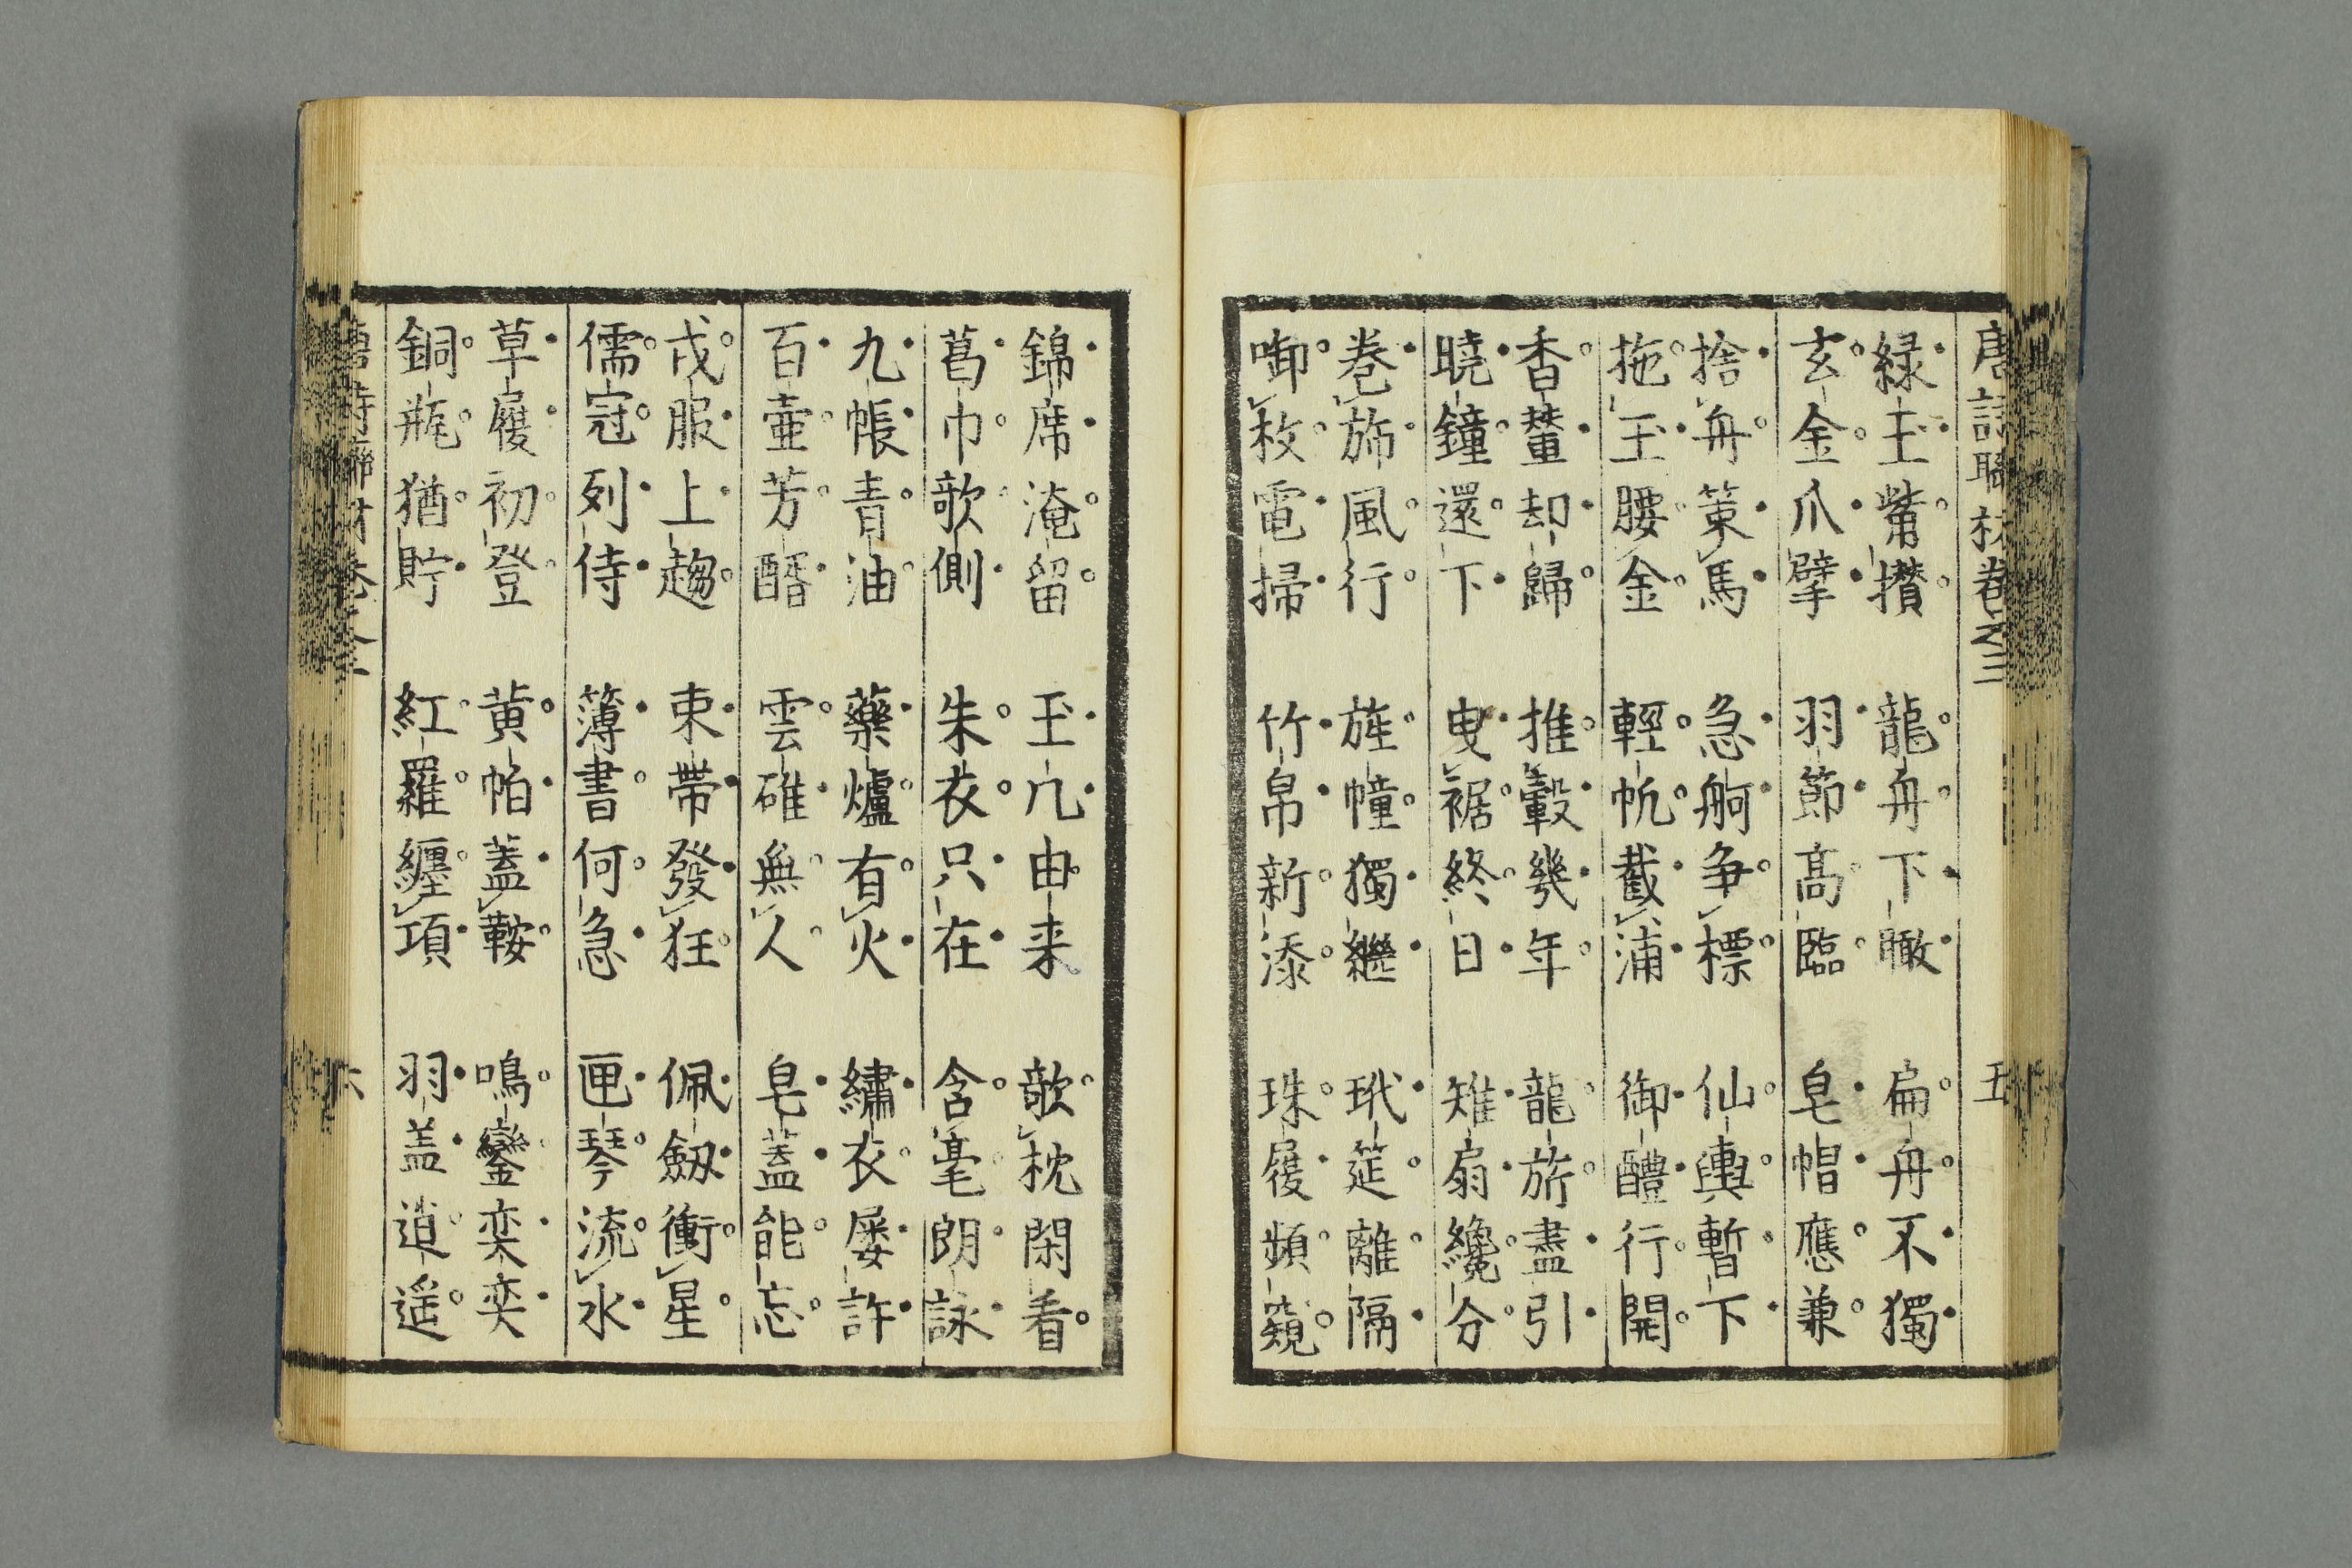 唐詩聯材卷之三 五
緑玉觜攅 龍舟下瞰 扁舟不獨
玄金爪擘 羽節高臨 皂帽應兼
捨舟策馬 急舸争標 仙輿暫下
拖玉腰金 輕帆截浦 御醴行開
香輦却歸 推轂幾年 龍旂盡引
曉鐘還下 曳裾終日 雉扇纔分
巻旆風行 旌幢獨繼 玳筵離隔
啣枚電掃 竹帛新添 珠履頻窺
錦席淹留 玉几由来 欹枕閑看
葛巾欹側 朱衣只在 含毫朗詠
九帳青油 藥爐有火 繡衣屡許
百壷芳醑 雲碓無人 皂蓋能忘
戎服上趨 束帶發狂 佩劔衝星
儒冠列侍 簿書何急 匣琴流水
草履初登 黄帕蓋鞍 鳴鑾奕奕
銅瓶猶貯 紅羅纏項 羽盖逍遥
唐詩聯材卷之三 六